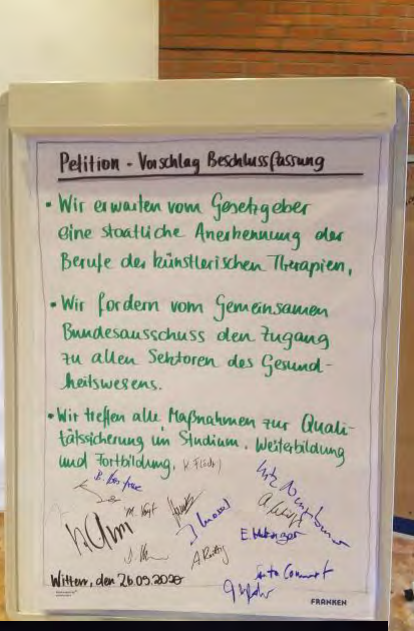 Petition - Vorschlag Beschlussfassung
• Wir erwarten vom Gesetzgeber
eine staatliche Anerkennung der
Berufe der künstlerischen Therapien,
• Wir fordern vom Gemeinsamen
Bundesausschuss den Zugang
zu allen Sektoren des Gesund-
heitswesens.
• Wir treffen alle Maßnahmen zur Quali-
tätssicherung im Studium, Weiterbildung
und Fortbildung.
Witten, den 26.09.2020
FRANKEN